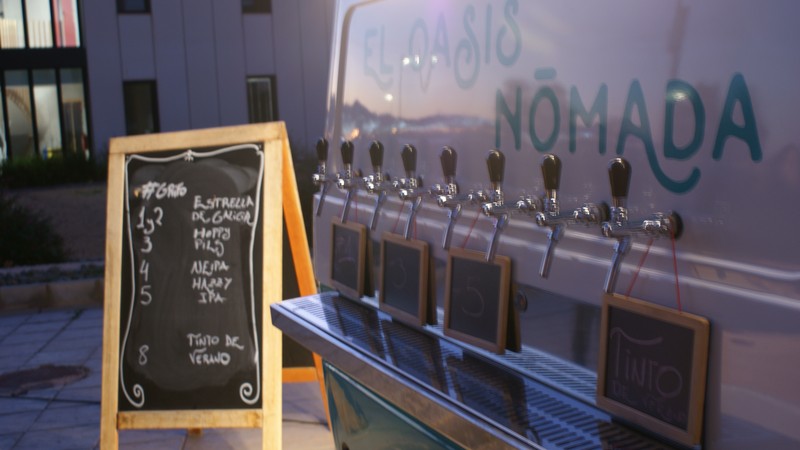 EL OASIS
NŌMADA
#GRIFO
1y2 ESTRELLA
DE GALICIA
3 HOPPY
PILS
4 NEIPA
5 HAZZY
IPA
8 TINTO DE
VERANO
5
TINTO